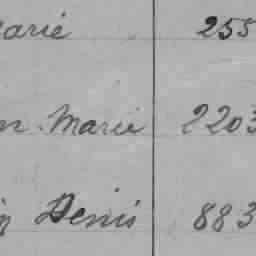 Marie 255
Marie 2203
Denis 883